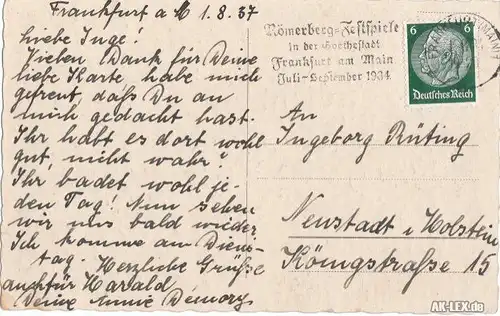 Frankfurt a M 1.8.37
Liebe Inge!
Vielen Dank für Deine
liebe Karte habe mich
gefreut, daß Du an
mich gedacht hast.
Ihr habt es dort wohl
gut, nicht wahr?
Ihr badet wohl je-
den Tag! Nun sehen
wir uns bald wieder
Ich komme am Diens-
tag. Herzliche Grüße
auch für Harald
Deine Annie
Römerberg-Festspiele
in der Goethestadt
Frankfurt am Main
Juli-September 1934
6 6
Deutsches Reich
An
Ingeborg Rüting
Neustadt i. Holstein
Königstraße 15
AK-LEX.de